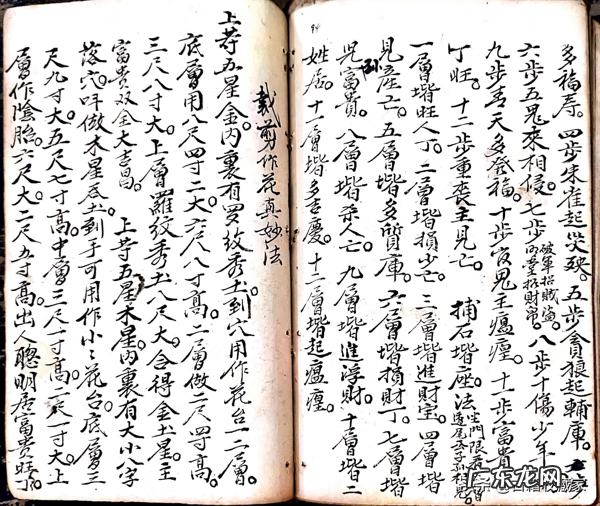 多福寿。四步朱雀起災殃。五步貪狼起輔庫。
六步五鬼來相侵。七步破軍招賊盜。八步十傷少年
九步青天多發福。十步官鬼主瘟瘟。十一步富貴
丁旺。十二步重喪主見亡。 捕石堦座法
一層堦旺人丁。二層堦損少亡。三層堦進財宝。四層堦
見產亡。五層堦多質庫。六層堦損財丁。七層堦
児孫富貴。八層堦杀人亡。九層堦進浮財。十層堦二
姓居。十一層堦多吉慶。十二層堦起瘟瘟。
裁剪作花真妙法
上等五星金。内裏有四紋秀土。到穴用作花台一二層。
底層用八尺四寸二大。六尺八寸高。二層做二尺四寸高。
三尺八寸大。上層羅紋秀土八尺大。合得金土星。主
富貴双金大吉昌。 上等五星木星。内裏有大小八字
落穴。叶做木星辰。土到手可用作小小花台。底層三
尺九寸大。五尺七寸高。中層三尺一寸高。一尺一寸大。上
層作陰胎。六尺大。二尺五寸高。出人聰明居富貴旺丁。